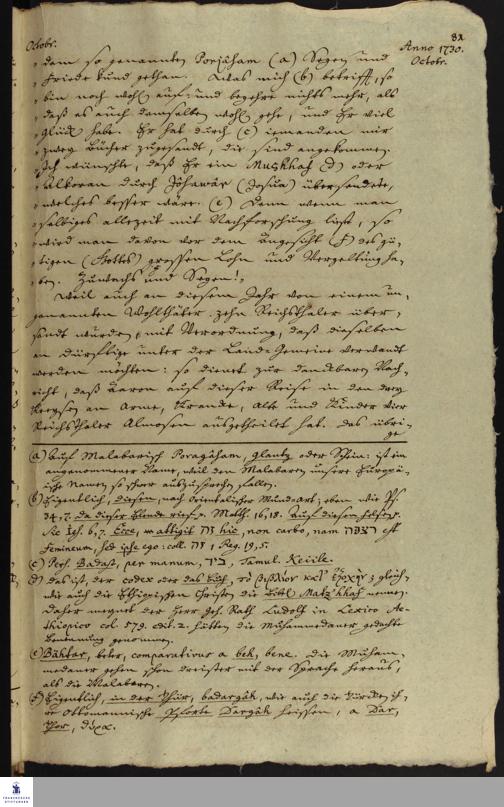 82
Octobr.
Anno 1730.
Octobr.
dem so genannten Porjàham (a) Segen und
Friede kund gethan. Was mich (b) betrifft, so
bin noch wohl auf: und begehre nichts mehr, als
daß es auch demselben wohl gehe, und Er viel
Glück habe. Er hat durch (c) jemanden mir
zwey Bücher zugesandt, die sind angekommen.
Ich wünschte, daß Er ein Muszhhaf (d) oder
Alkoran durch Jòhawàr (Josua) übersendete,
welches besser wäre. (e) Denn wenn man
selbiges allezeit mit Nachforschung liest, so
wird man davon vor dem Angesicht (f) des gü-
tigen (Gottes) grossen Lohn und Vergeltung ha-
ben. Zuwachs und Segen!
Weil auch in diesem Jahr von einem un-
genannten Wohlthäter zehn Reichsthaler über-
sandt wurden, mit Verordnung, daß dieselben
an dürftige unter der Land-Gemeine verwandt
werden möchten: so dienet zur dankbaren Nach-
richt, daß Aaron auf dieser Reise in den drey
Kreysen an Arme, Krancke, Alte und Kinder vier
Reichsthaler Almosen ausgetheilet hat. Das übri-
ge
(a) Auf Malabarisch Poragàham, glantz oder Schein: ist ein
angenommener Name, weil den Malabaren unsere Europäi-
sche Namen so schwer auszusprechen fallen.
(b) Eigentlich, diesem, nach Orientalischer Mund-art, eben wie Ps.
34, 7. da dieser Elende rief. Matth. 16, 18. Auf diesem felsen.
Sic Jes. 6, 7. Ecce, attigit זה hic, non carbo, nam רצפה est
femineum, sed ipse ego: coll. זה 1 Reg. 19, 5.
(c) Pers. Badast, per manum, ביד, Tamul. Keiile.
(d) Das ist, der codex oder das Buch, τὸ βιβλίον κατ' ἐξοχήν, gleich-
wie auch die Ethiopischen Christen die Bibel Matz'hhaf nennen.
Daher meynet der Herr Geh. Rath Ludolf in Lexico Ae-
thiopico col. 579. edit. 2. hätten die Muhammedaner gedachte
Benennung genommen.
(e) Bàhtar, beter, comparativus a beh, bene. Die Muham-
medaner gehen schon dreister mit der Sprache heraus,
als die Malabaren.
(f) Eigentlich, in der Thür, badargàh, wie auch die Türcken ih-
re Ottomannische Pforte Dargàh heissen, a Dar,
Thor, θύρα.
FRANCKESCHE STIFTUNGEN